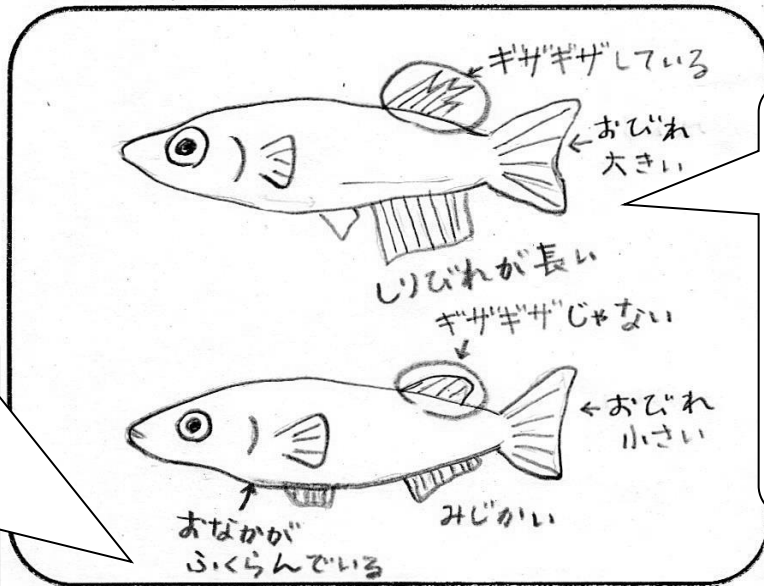 ギザギザしている
おびれ
大きい
しりびれが長い
ギザギザじゃない
おびれ
小さい
みじかい
おなかが
ふくらんでいる